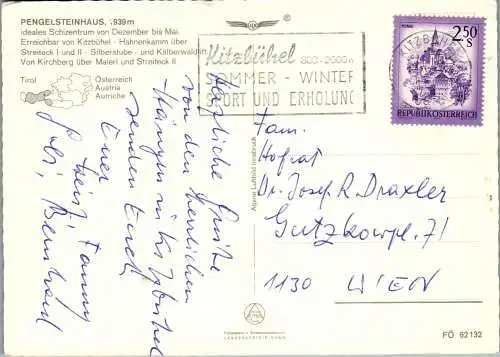 PENGELSTEINHAUS, 1939 m
ideales Schizentrum von Dezember bis Mai.
Erreichbar von Kitzbühel - Hahnenkamm über
Streiteck I und II - Silberstube - und Kälberwaldlift.
Von Kirchberg über Maierl und Streiteck II
Tirol
Österreich
Austria
Autriche
Kitzbühel 800-2000 m
SOMMER - WINTER
SPORT UND ERHOLUNG
KITZBÜHEL
2.50 S
REPUBLIK ÖSTERREICH
Herzliche Grüße
von den herrlichen
in Kitzbühel
senden Euch
Euer
Fanny
Bernhard
Alpine Luftbild Innsbruck
Fam.
Hofrat
Dr. Josef R. Draxler
Gutzkowpl. 7/
1130 WIEN
FÖ 62 132